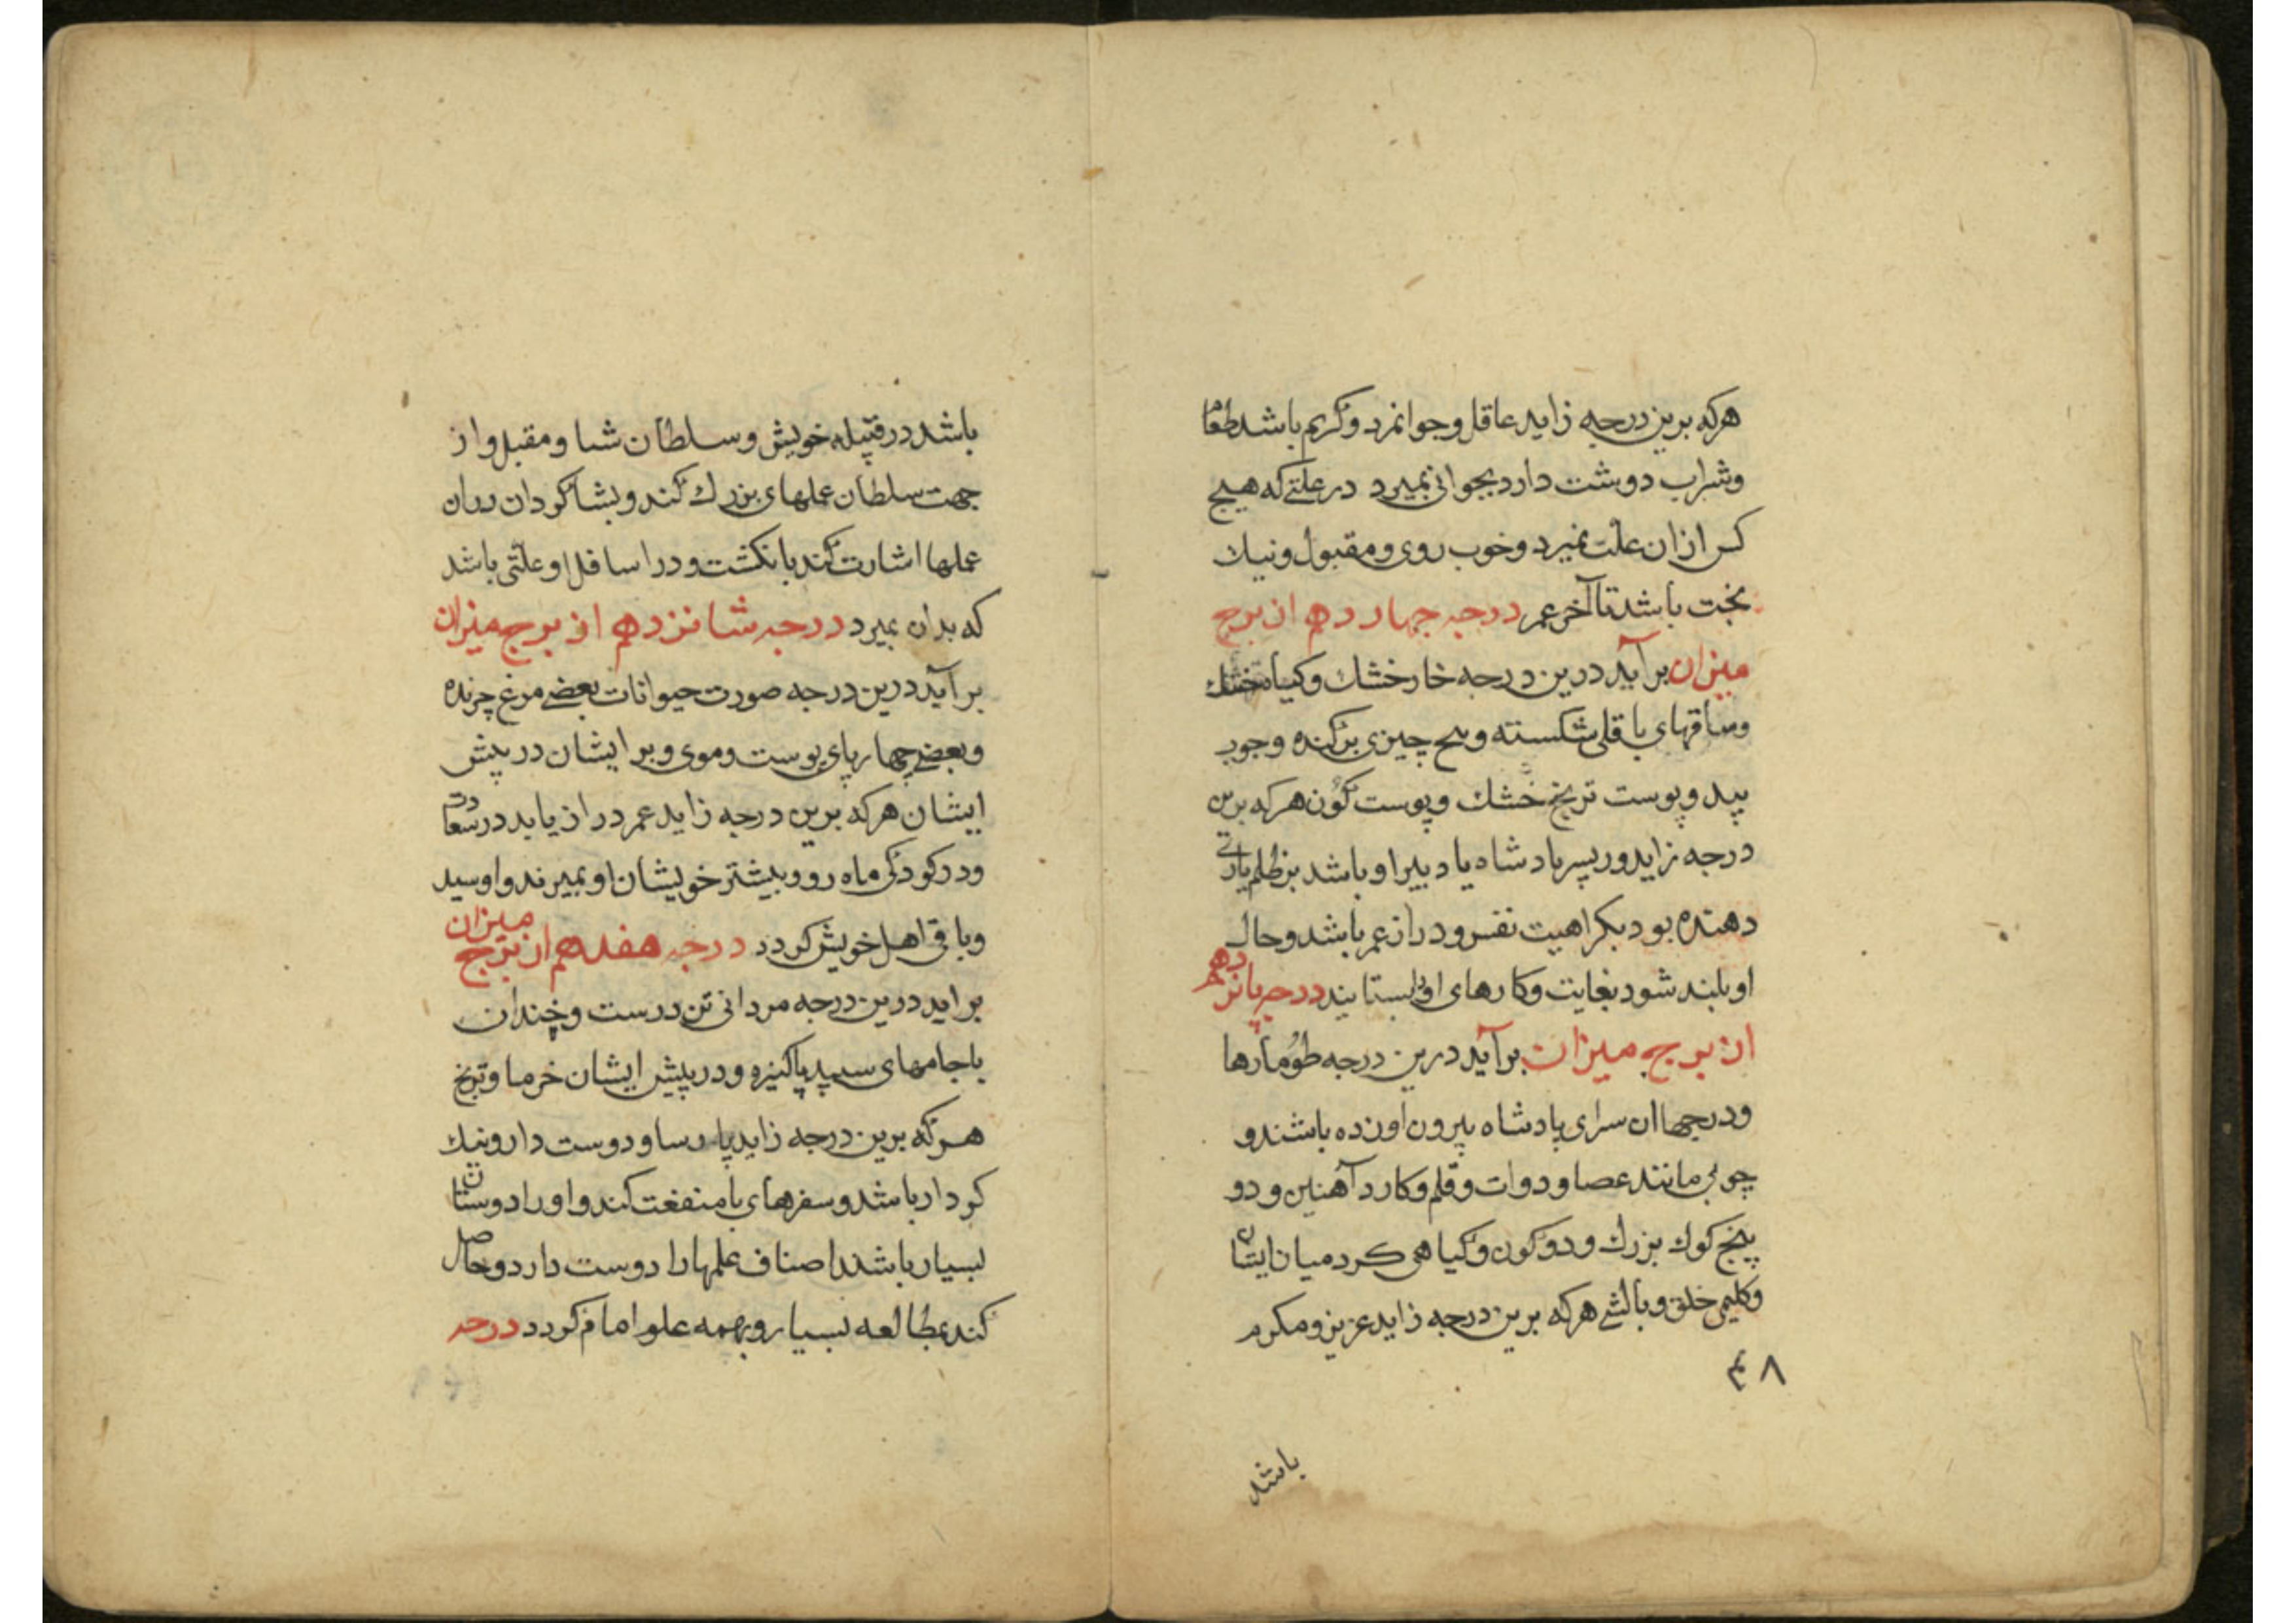 هرکه برین درجه زاید عاقل و جوانمرد و کریم باشد طعام
و شراب دوست دارد بجوانی بمیرد در علتی که هیچ
کس ازان علت نمیرد و خوب روی و مقبول و نیک
بخت باشد تا آخر عمر درجه چهاردهم از برج
میزان برآید درین درجه خار خشک و کیاه خشک
و ساقهای باقلی شکسته و چیزی برکنده و چوب
بید و پوست ترنج خشک و پوست کون هرکه برین
درجه زاید و ر پسر پادشاه یا دبیر او باشد بر ظلم یاری
دهنده بود بکراهیت نفس و دراز عمر باشد و حال
او بلند شود بغایت و کارهای او بستایند درجه پانزدهم
از برج میزان برآید درین درجه طومارها
و درجها از سرای پادشاه بیرون آورده باشند و
چوبی مانند عصا و دوات و قلم و کارد آهنین و دو
پنج کوک بزرک و دو کون و کیاهی کرد میان ایشان
و کلیمی خلق و بالشی هرکه برین درجه زاید عزیز و مکرم
۴۸
باشد
باشد در قبیله خویش و سلطان شا و مقبل و از
جهت سلطان عملهای بزرک کند و بشاکردان دران
عملها اشارت کند بانکشت و در اسافل او علتی باشد
که بدان بمیرد درجه شانزدهم از برج میزان
برآید درین درجه صورت حیوانات بعضی مرغ چرنده
و بعضی چهارپای پوست و موی و بر ایشان در پیش
ایشان هرکه برین درجه زاید عمر دراز یابد در سعادت
و در کودکی ماه رو و بیشتر خویشان او بمیرند و او سید
و باقی اهل خویش کردد درجه هفدهم از برج میزان
براید درین درجه مردانی تن درست و خندان
با جامهای سپید پاکیزه و در پیش ایشان خرما و ترنج
هرکه برین درجه زاید پارسا و دوست دار و نیک
کردار باشد و سفرهای با منفعت کند و او را دوستان
بسیار باشند اصناف علمها را دوست دارد و حاصل
کند بمطالعه بسیار و بهمه علوم امام کردد درجه